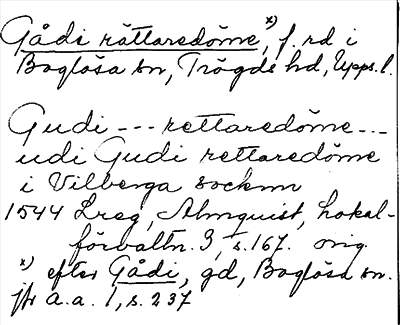 Gådi rättaredöme x), f. rd i
Boglösa sn, Trögds hd, Upps. l.
Gudi --- rettaredöme ---
udi Gudi rettaredöme
i Vilberga socknn
1544 Lreg, Almquist, Lokal-
förvaltn. 3, s. 167. orig.
x) efter Gådi, gd, Boglösa sn.
jfr a.a. 1, s. 237